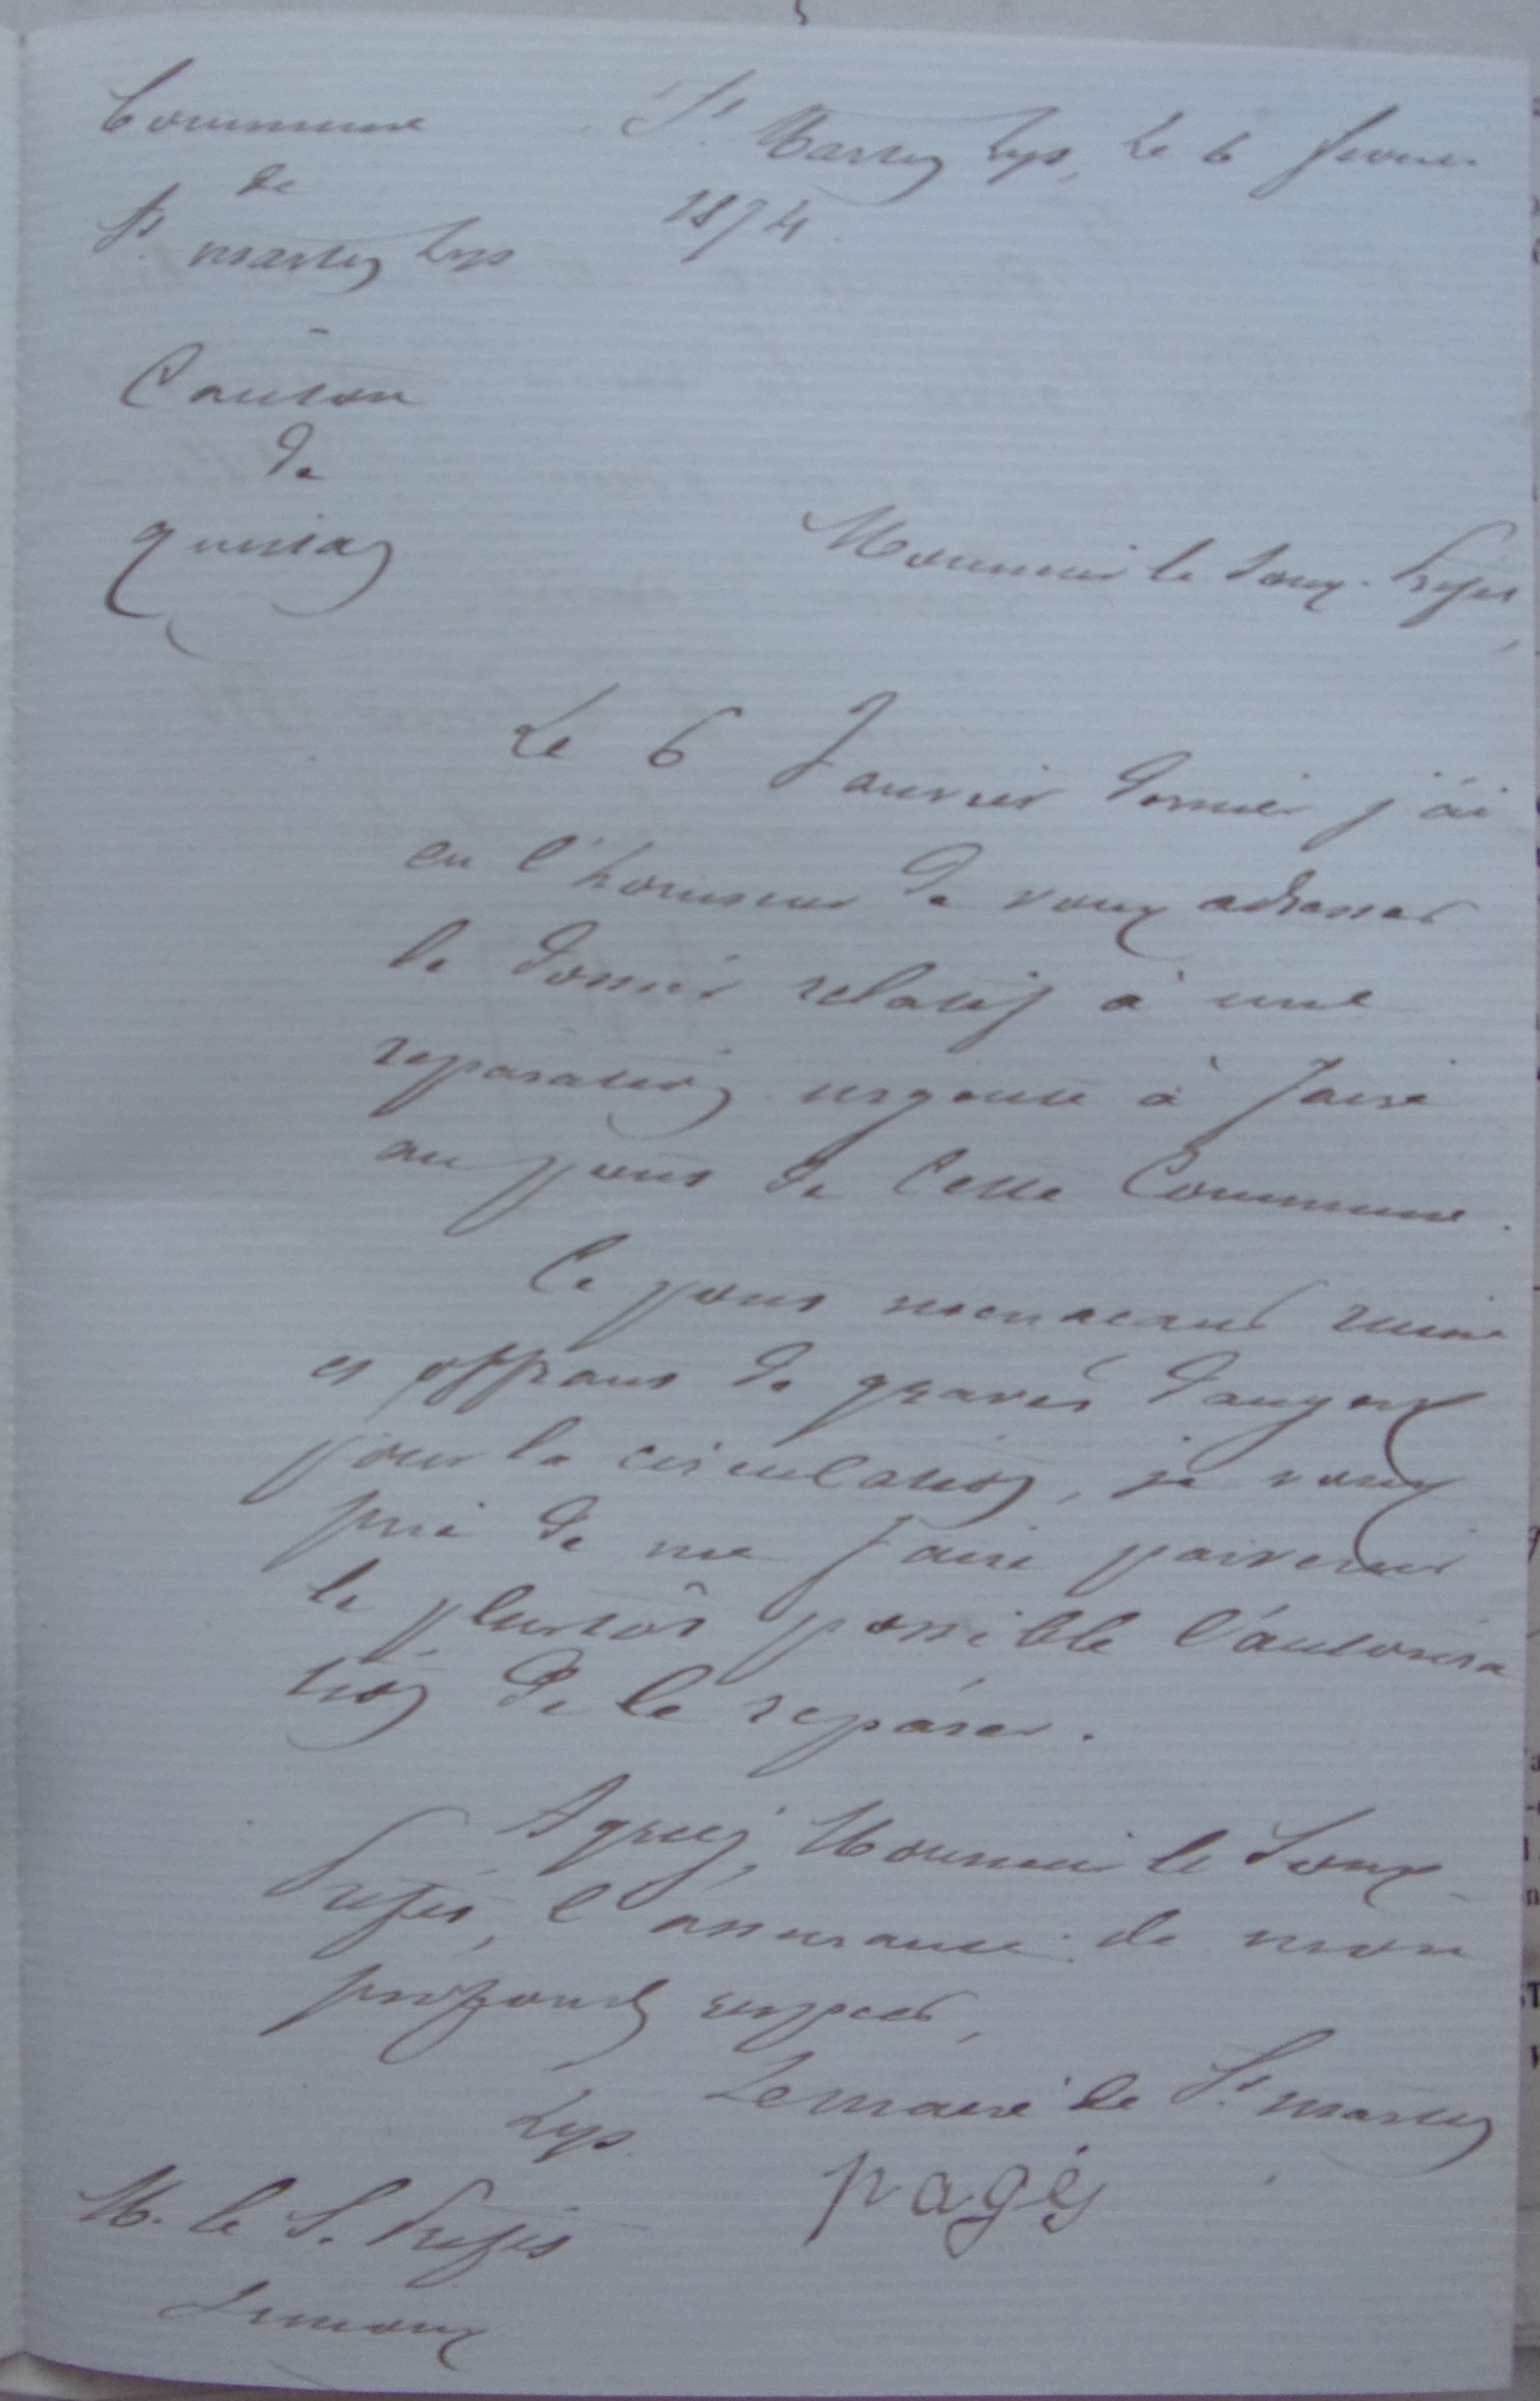 Commune
de
St martin Lys
Canton
de
quillan
St Martin Lys, Le 6 fevrier
1874.
Monsieur le Sous-Préfet,
Le 6 Janvier dernier j'ai
eu l'honneur de vous adresser
le dossier relatif à une
reparation urgente à faire
au pont de cette Commune.
Ce pont menacant ruine
et offrant de graves dangers
pour la circulation, je vous
prie de me faire parvenir
le plustôt possible l'autorisa
tion de le reparer.
Agréez, Monsieur le Sous-
Préfet, l'assurance de mon
profond respect,
Lemaire de St martin
Lys.
pagés
M. le S. Préfet
Limoux